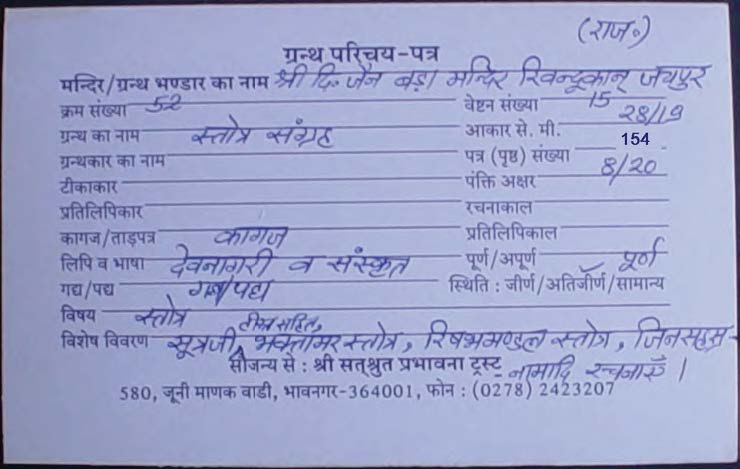 (राज०)
ग्रन्थ परिचय-पत्र
मन्दिर/ग्रन्थ भण्डार का नाम श्री दि. जैन बड़ा मन्दिर जयपुर
क्रम संख्या 52 वेष्टन संख्या 15
ग्रन्थ का नाम स्तोत्र संग्रह आकार से. मी. 28/19
ग्रन्थकार का नाम पत्र (पृष्ठ) संख्या 154
टीकाकार पंक्ति अक्षर 8/20
प्रतिलिपिकार रचनाकाल
कागज/ताड़पत्र कागज प्रतिलिपिकाल
लिपि व भाषा देवनागरी व संस्कृत पूर्ण/अपूर्ण पूर्ण
गद्य/पद्य गद्य/पद्य स्थिति : जीर्ण/अतिजीर्ण/सामान्य
विषय स्तोत्र
टीका सहित,
विशेष विवरण सूत्रजी, भक्तामर स्तोत्र, रिषभमण्डल स्तोत्र, जिनसहस्र-
सौजन्य से : श्री सत्श्रुत प्रभावना ट्रस्ट नामादि रचनाएँ।
580, जूनी माणक वाडी, भावनगर-364001, फोन : (0278) 2423207